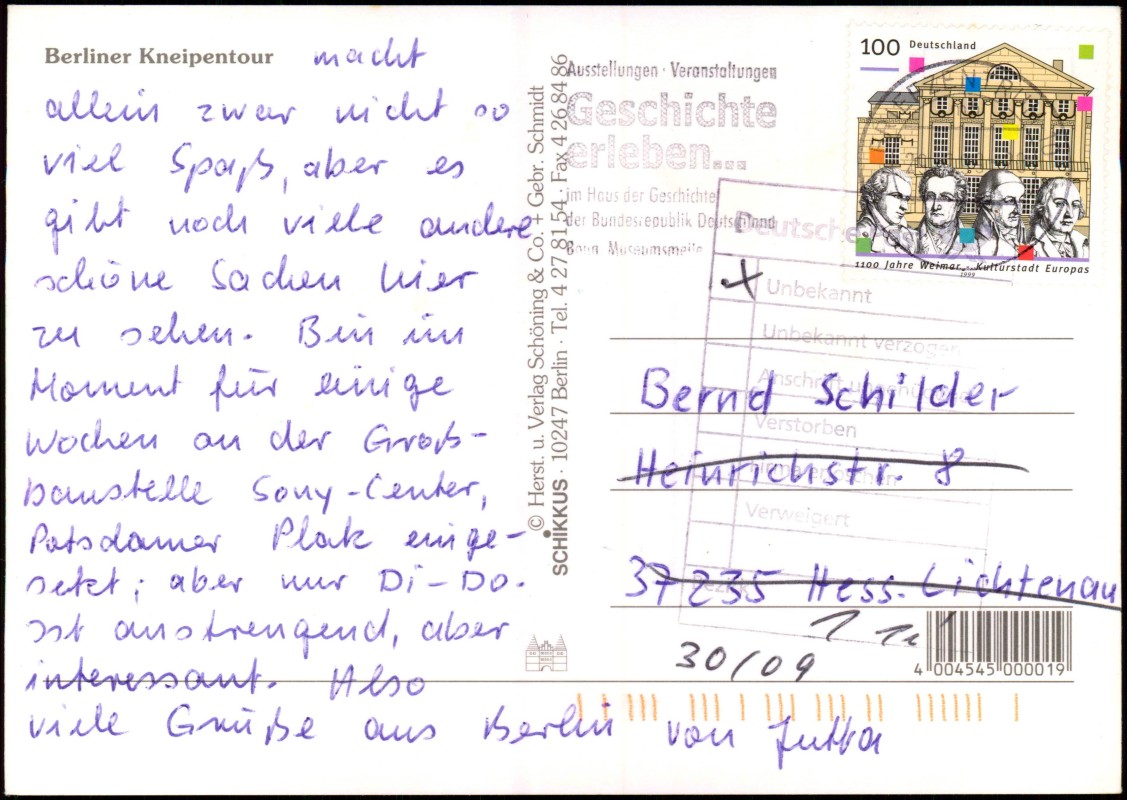 Berliner Kneipentour macht
allein zwar nicht so
viel Spaß, aber es
gibt noch viele andere
schöne Sachen hier
zu sehen. Bin im
Moment für einige
Wochen an der Groß-
baustelle Sony-Center,
Potsdamer Platz einge-
setzt; aber nur Di-Do.
Ist anstrengend, aber
interessant. Also
viele Grüße aus Berlin von Jutta
© Herst. u. Verlag Schöning & Co. + Gebr. Schmidt
SCHIKKUS · 10247 Berlin · Tel. 4 27 81 54 · Fax 4 26 84 86
Ausstellungen · Veranstaltungen
Geschichte
erleben...
im Haus der Geschichte
der Bundesrepublik Deutschland
Bonn Museumsmeile
100 Deutschland
1100 Jahre Weimar - Kulturstadt Europas
1999
Deutsche
Unbekannt
Unbekannt verzogen
Verstorben
Verweigert
Bernd Schilder
Heinrichstr. 8
37235 Hess. Lichtenau
30/09
4 004545 000019